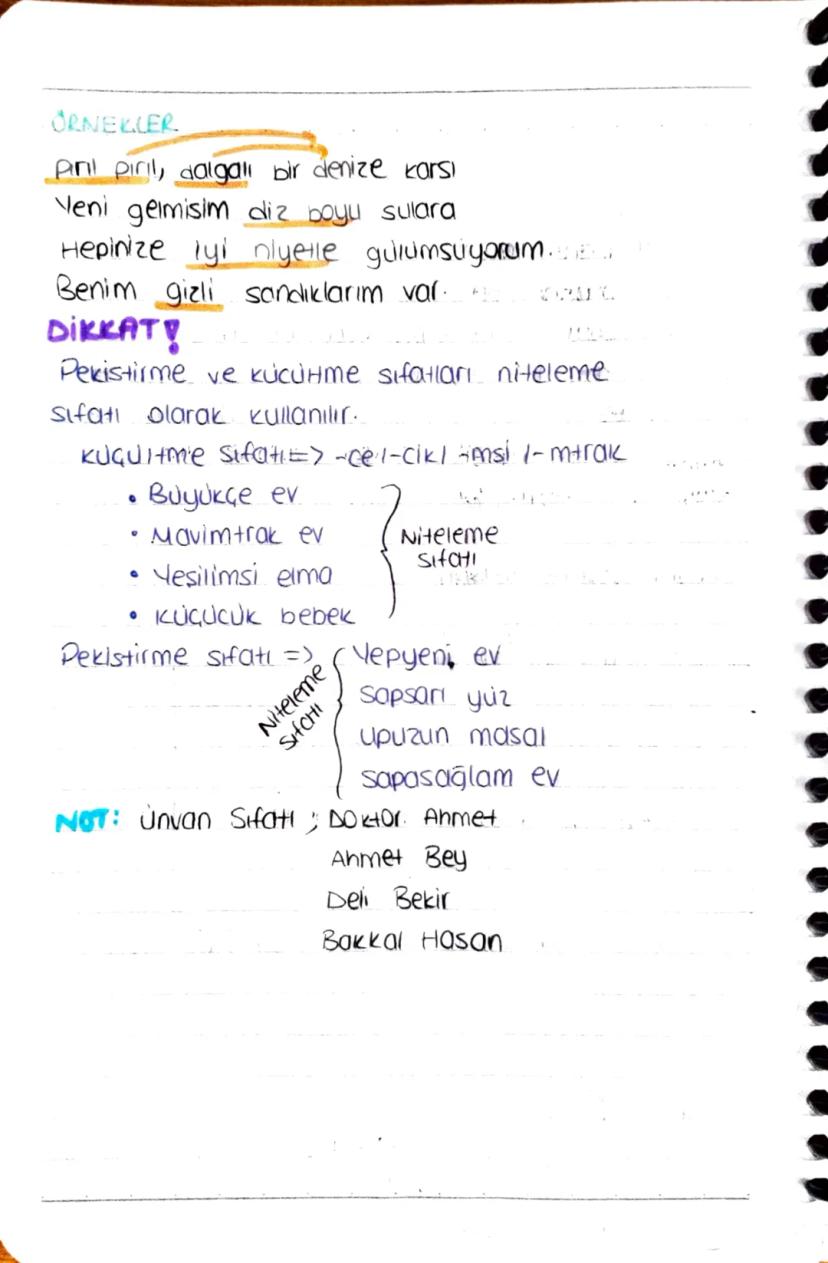 ÖRNEKLER
Pırıl pırıl, dalgalı bir denize karsı
Yeni gelmisim diz boyu sulara
Hepinize iyi niyetle gülümsüyorum.
Benim gizli sandıklarım var.
DİKKAT!
Pekistirme ve kücültme sıfatları niteleme
sıfatı olarak kullanılır.
Küçültme Sıfatı=> -ce/-cik/-imsi/-mtrak
• Büyükçe ev
• Mavimtrak ev
• Yesilimsi elma
• Küçücük bebek
Niteleme
sıfatı
Pekistirme sıfatı => Yepyeni ev
sapsarı yüz
upuzun masal
sapasağlam ev
Niteleme
sıfatı
NOT: Ünvan Sıfatı ; Doktor Ahmet
Ahmet Bey
Deli Bekir
Bakkal Hasan